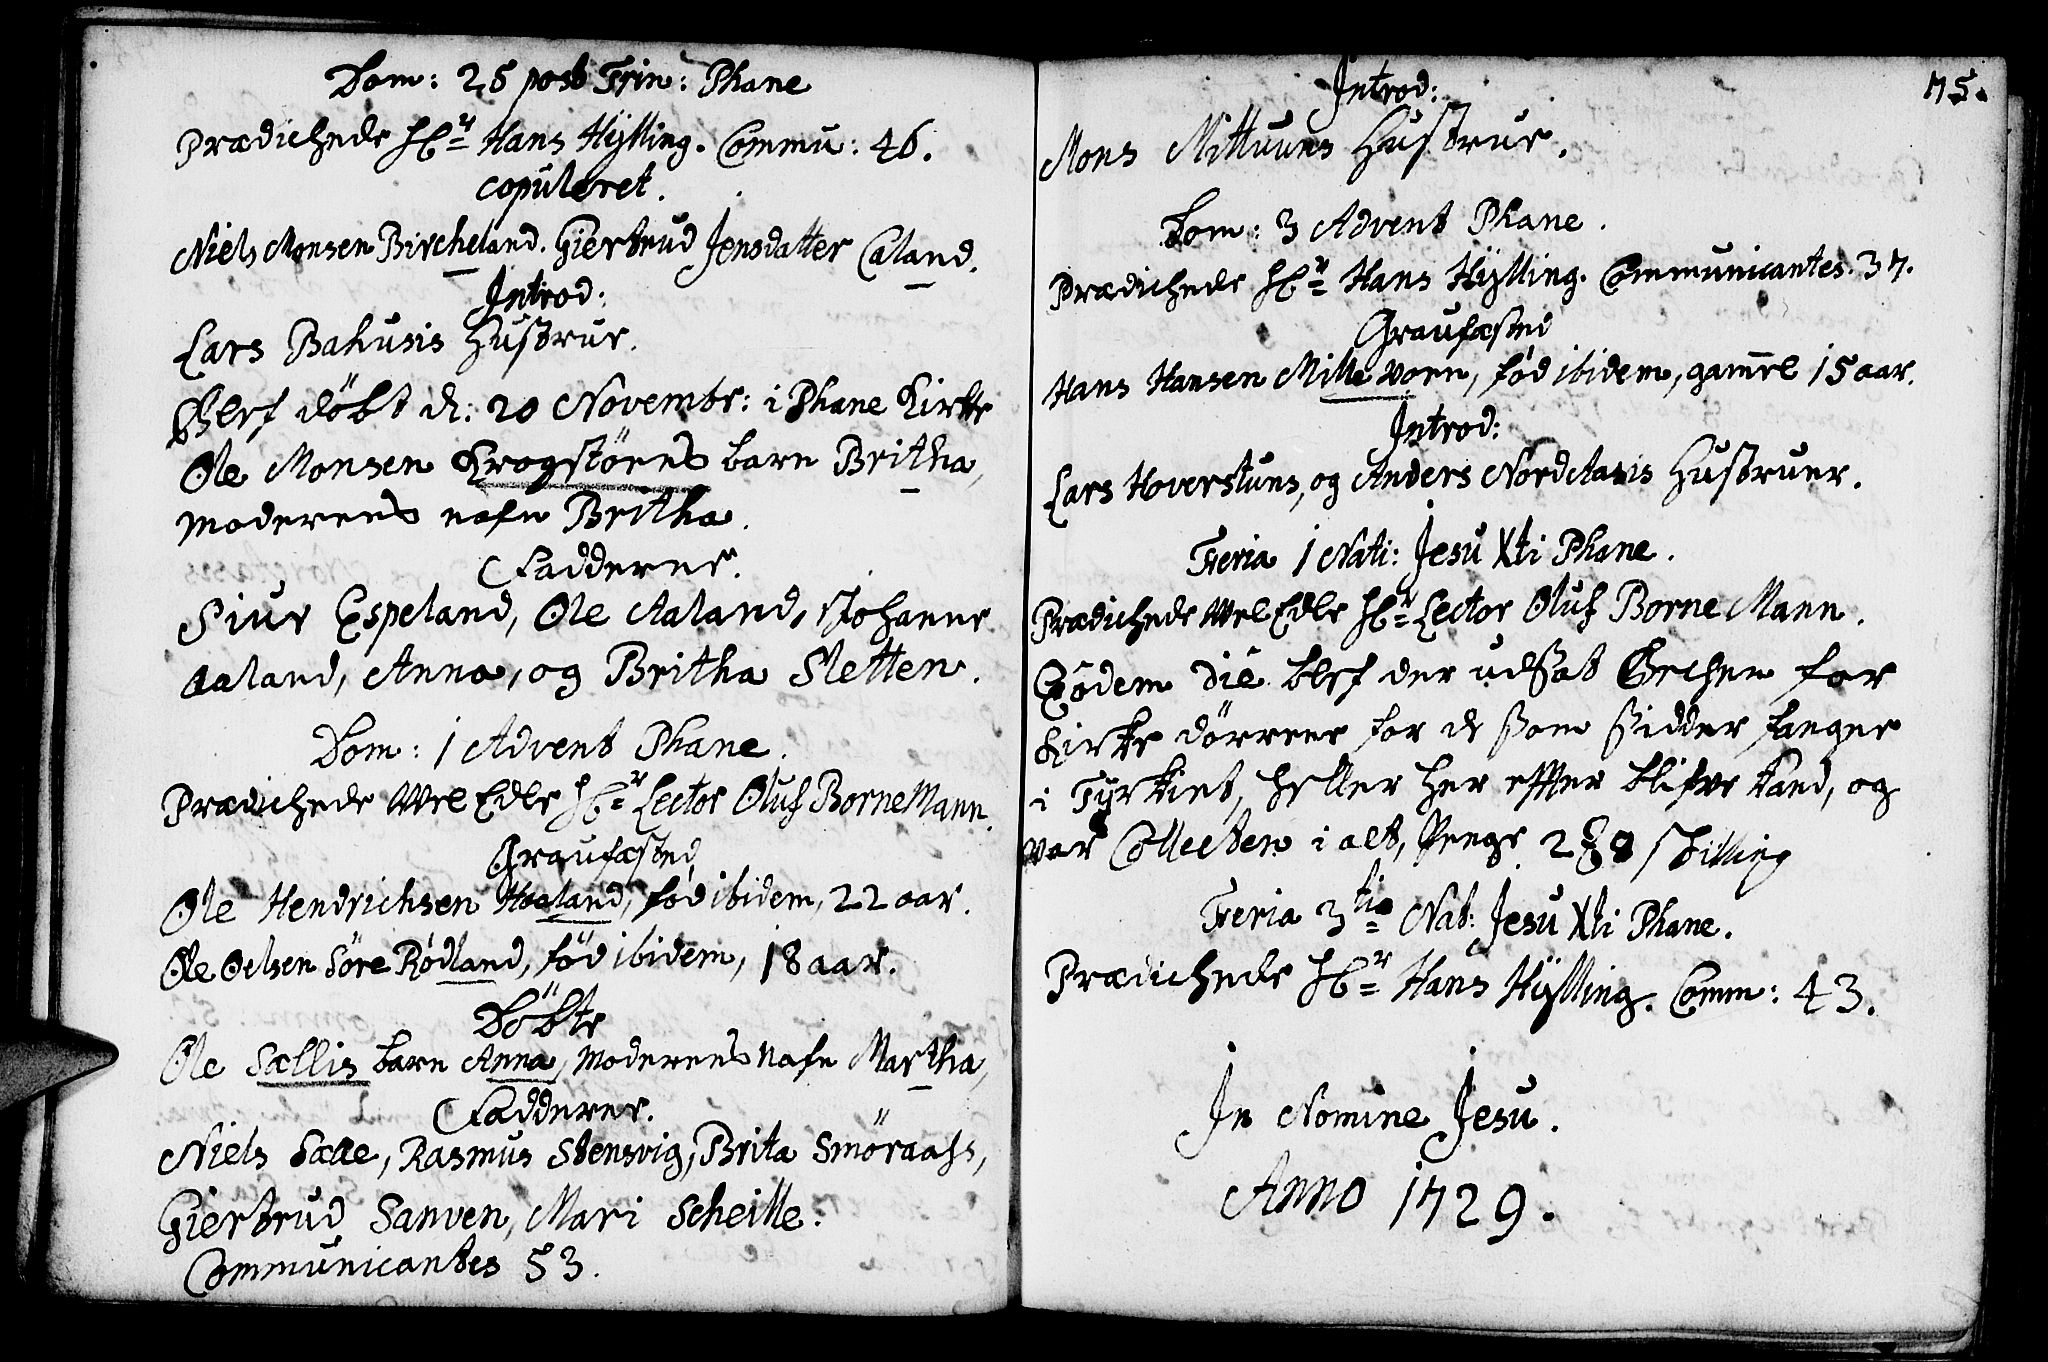 Dom: 25 post Trin: Phane
Prædichede Hr Hans Hÿlling. Commu: 46.
Copuleret.
Niels Monsen Bircheland. Giertrud Jensdatter Caland.
Introd:
Lars Bakusis Hustrue.
Blef döbt d: 20 Novembr: i Phane Kirke
Ole Monsen Krogstörens barn Britha,
Moderens nafn Britha.
Fadderne.
Siur Espeland, Ole Aaland, Johanne
Aaland, Anna, og Britha Sletten.
Dom: 1 Advent Phane.
Prædichede Wel Edle Hr Lector Oluf BorneMann.
Graufæsted
Ole Hendrichsen Haaland, född ibidem, 22 aar.
Ole Oelsen Söre Rödland, född ibidem, 18 aar.
Döbte
Ole Sællis barn Anna, Moderens Nafn Martha,
Fadderne.
Niels Sælle, Rasmus Stensvig, Brita Smöraahs,
Giertrud Sanven, Mari Scheille.
Communicantes 53.
75.
Introd:
Mons Mittuuns Hustrue.
Dom: 3 Advent Phane.
Prædichede Hr Hans Hÿlling. Communicantes. 37.
Graufæsted
Hans Hansen Mille voen, föd ibidem, gamel 15 aar.
Introd:
Lars Hoverstuns, og Anders Nordaasis Hustruer.
Feria 1 Nati: Jesu Xti Phane.
Prædichede Wel Edle Hr Lector Oluf BorneMann.
Eodem Die blef der udsat Becher for
Kirke dörrene for de som sidder fangne
i Tyrkiet, heller her effter blifve kand, og
var Collecten i alt, Penge 2 ꝣ 8 skilling
Feria 3tia Nat: Jesu Xti Phane.
Prædichede Hr Hans Hÿlling. Comm: 43.
In Nomine Jesu.
Anno 1729.